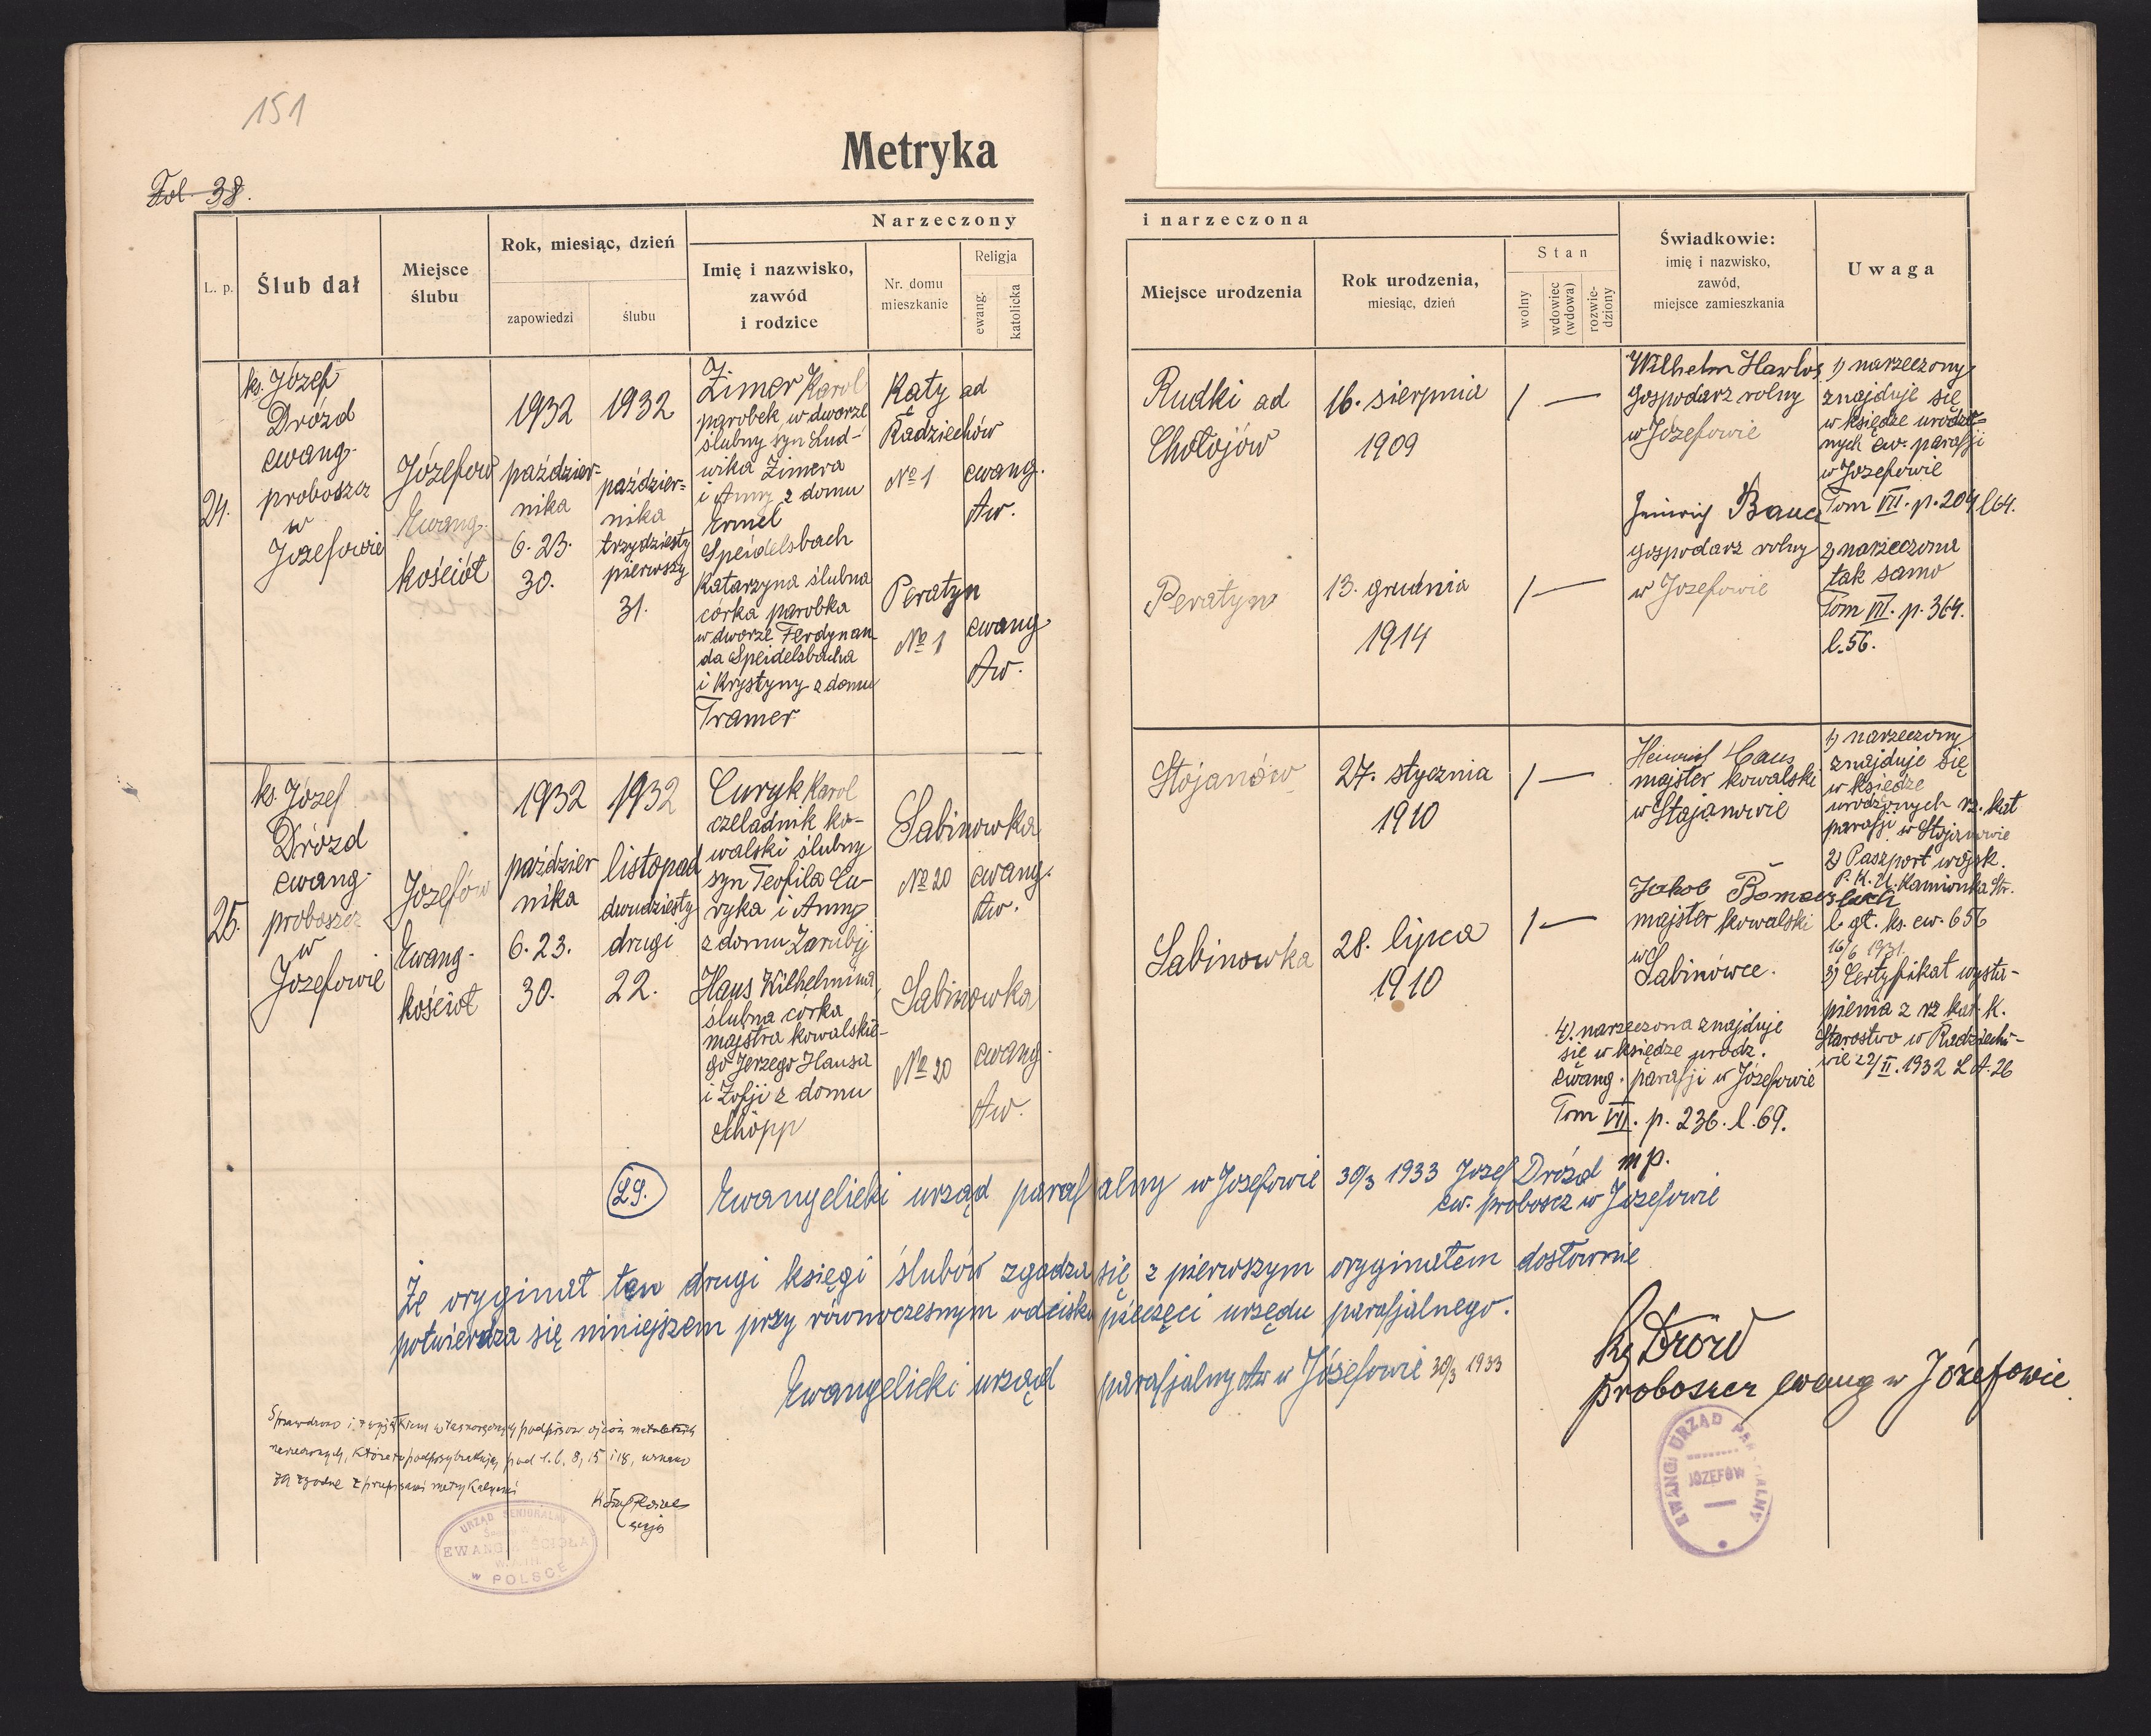 151
Metryka
Fol. 38.
L. p.
Ślub dał
Miejsce
ślubu
Rok, miesiąc, dzień
zapowiedzi
ślubu
Narzeczony
Imię i nazwisko,
zawód
i rodzice
Nr. domu
mieszkanie
Religja
ewang.
katolicka
i narzeczona
Miejsce urodzenia
Rok urodzenia,
miesiąc, dzień
Stan
wolny
wdowiec
(wdowa)
rozwie-
dziony
Świadkowie:
imię i nazwisko,
zawód,
miejsce zamieszkania
Uwaga
24.
ks. Józef
Drózd
ewang.
proboszcz
w
Józefowie
Józefow
Ewang.
kościół
1932
paździer-
nika
6. 23.
30.
1932
paździer=
nika
trzydziesty
pierwszy
31.
Zimer Karol
parobek w dworze
ślubny syn Lud-
wika Zimera
i Anny z domu
Ermel
Speidelsbach
Katarzyna ślubna
córka parobka
w dworze Ferdynan-
da Speidelsbacha
i Krystyny z domu
Tramer
Katy ad
Radziechów
№ 1
ewang.
Aw.
Peratyn
№ 1
ewang.
Aw.
Rudki ad
Chołojów
16. sierpnia
1909
/ —
Peratyn
13. grudnia
1914
/ —
Wilhelm Hawlos
gospodarz rolny
w Józefowie
Heinrich Bauer
gospodarz rolny
w Jozefowie
1) narzeczony
znajduje się
w księdze urodzo=
nych ew. parafji
w Jozefowie
Tom VII. p. 204 l 64.
2) narzeczona
tak samo
Tom VII. p. 364.
l. 56.
25.
ks. Józef
Drózd
ewang.
proboszcz
w
Jozefowie
Jozefów
Ewang.
kościół
1932
paździer
nika
6. 23.
30.
1932
listopad
dwudziesty
drugi
22.
Curyk Karol
czeladnik ko-
walski ślubny
syn Teofila Cu-
ryka i Anny
z domu Zarubij
Haus Wilhelmina,
ślubna córka
majstra kowalskie-
go Jerzego Hausa
i Zofji z domu
Schöpp
Sabinowka
№ 20
ewang.
Aw.
Sabinowka
№ 20
ewang.
Aw.
Stojanów
27. stycznia
1910
/ —
Sabinowka
28. lipca
1910
/ —
Heinrich Haus
majster kowalski
w Stajanowie
Jakob
majster kowalski
w
Sabinówce.
1) narzeczony
znajduje się
w księdze
urodzonych rz. kat
parafji w Stojanowie
2) Paszport wojsk.
P. K. U. Kamionka Str.
l. gt. ks. ew. 656
16/6 1931.
3) Certyfikat wystą-
pienia z rz kat. k.
Starostwo w Radziecho-
wie 22/II. 1932 L A. 26
4) narzeczona znajduje
się w księdze urodz.
ewang. parafji w Józefowie
Tom VII. p. 236. l. 69.
29.
Ewangelicki urząd parafjalny w Jozefowie 30/3 1933 Jozef Drózd mp.
ew. proboscz w Jozefowie
Że oryginał ten drugi księgi ślubów zgadza się z pierwszym oryginałem dosłownie
potwierdza się niniejszem przy równoczesnym odcisku pieczęci urzędu parafjalnego.
Ewangelicki urząd parafjalny Aw w Józefowie 30/3 1933
Ks Drózd
proboszcz ewang w Józefowie.
Sprawdzono i, z wyjątkiem własnoręcznych podpisów ojców małoletnich
narzeczonych, których podpisy brakują pod l. 6, 8, 15 i 18, uznano
za zgodne z przepisami metrykalnymi
URZĄD SENIORALNY
EWANG. KOŚCIOŁA
W POLSCE
EWANG. URZĄD PARAFJALNY
JÓZEFÓW